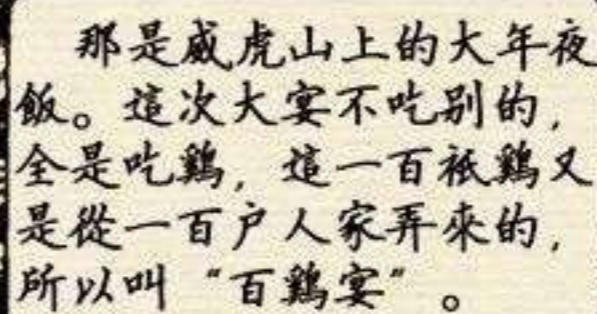 那是威虎山上的大年夜
飯。這次大宴不吃别的，
全是吃鷄，這一百衹鷄又
是從一百户人家弄來的，
所以叫“百鷄宴”。